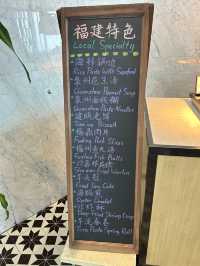 福建特色
Local Specialty
海鲜锅边
Rice Paste with Seafood
泉州花生汤
Quanzhou Peanut Soup
泉州面线糊
Quanzhou Paste Noodles
建瓯光饼
Jian'ou Biscuit
福鼎肉片
Fuding Pork Slices
福州鱼丸汤
Fuzhou Fish Balls
Fried Wonton
芋头糕
Fried Taro Cake
海蛎煎
Oyster Omelet
虾酥
Deep-Fried Shrimp Crisp
芋泥春卷
Taro Paste Spring Roll